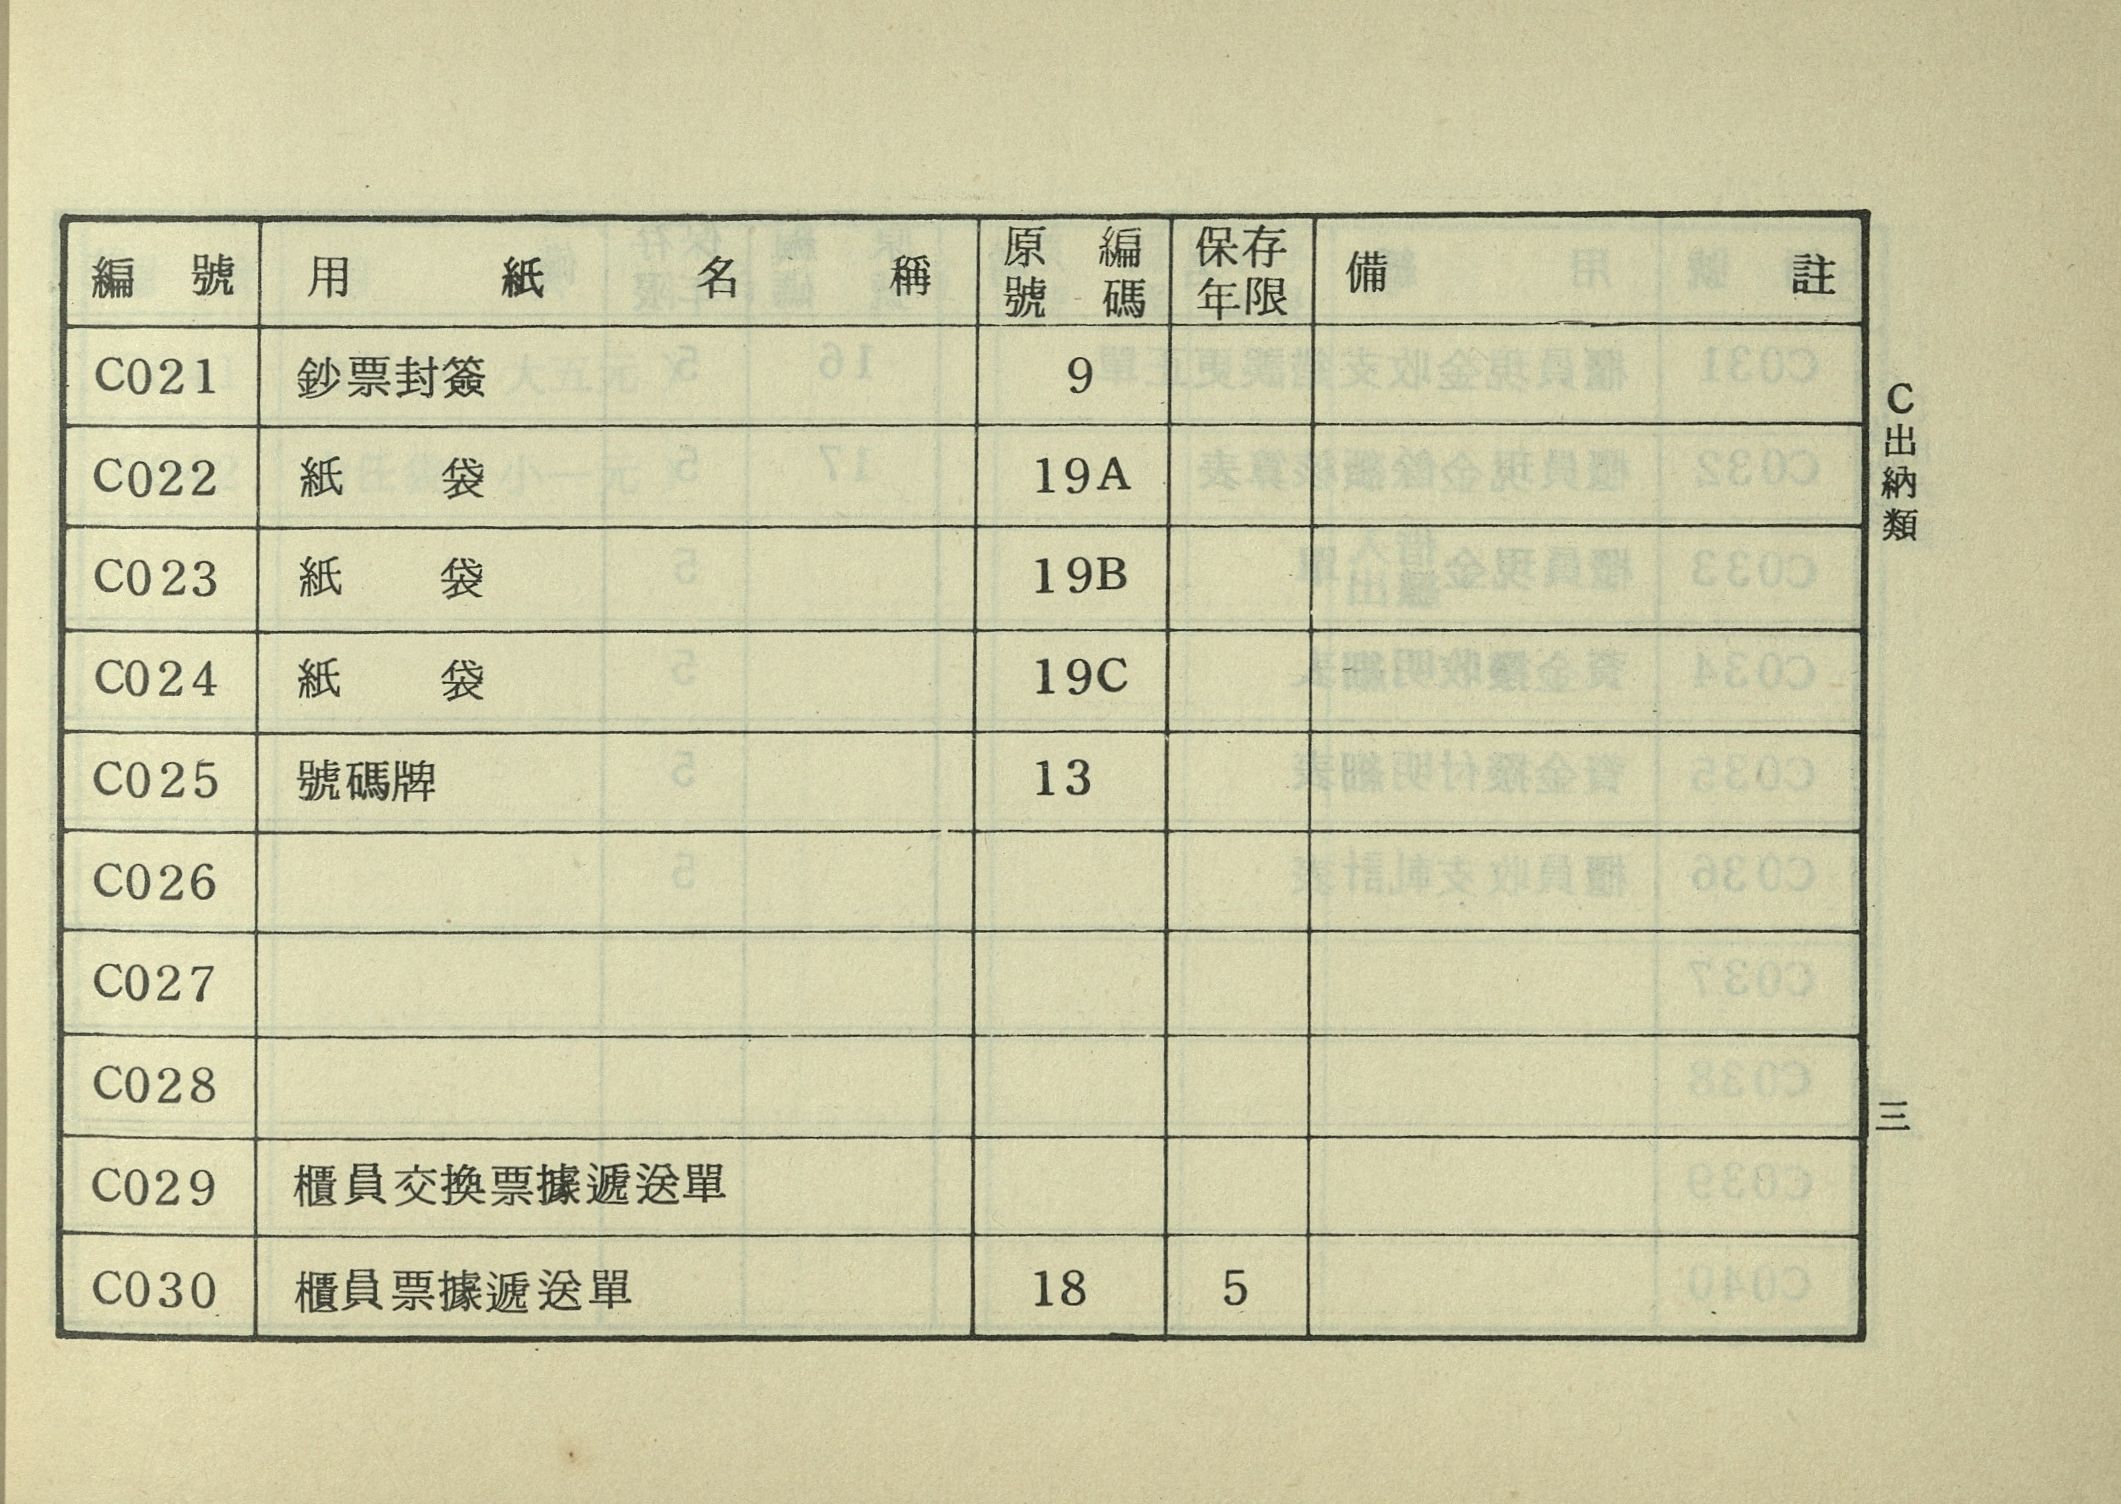 編號 用紙名稱 原編號碼 保存年限 備註
C021 鈔票封簽 9
C022 紙袋 19A
C023 紙袋 19B
C024 紙袋 19C
C025 號碼牌 13
C026
C027
C028
C029 櫃員交換票據遞送單
C030 櫃員票據遞送單 18 5
C出納類
三